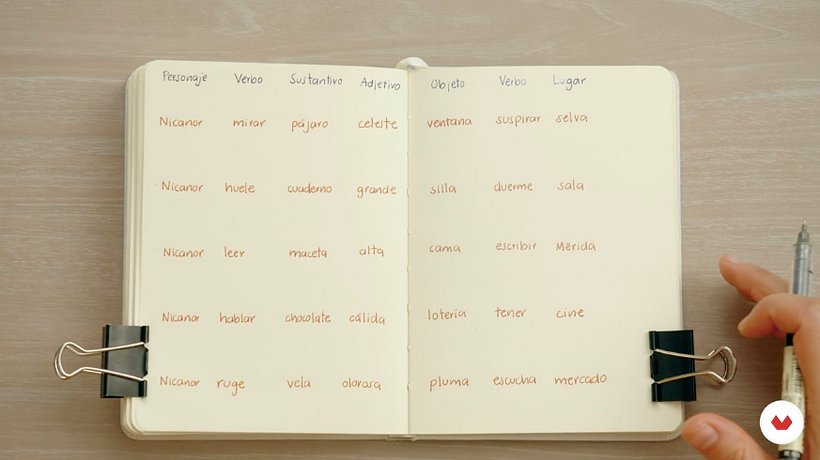 Personaje Verbo Sustantivo Adjetivo Objeto Verbo Lugar
Nicanor mirar pájaro celeste ventana suspirar selva
Nicanor huele cuaderno grande silla duerme sala
Nicanor leer maceta alta cama escribir Mérida
Nicanor hablar chocolate cálida lotería tener cine
Nicanor ruge vela olorosa pluma escucha mercado